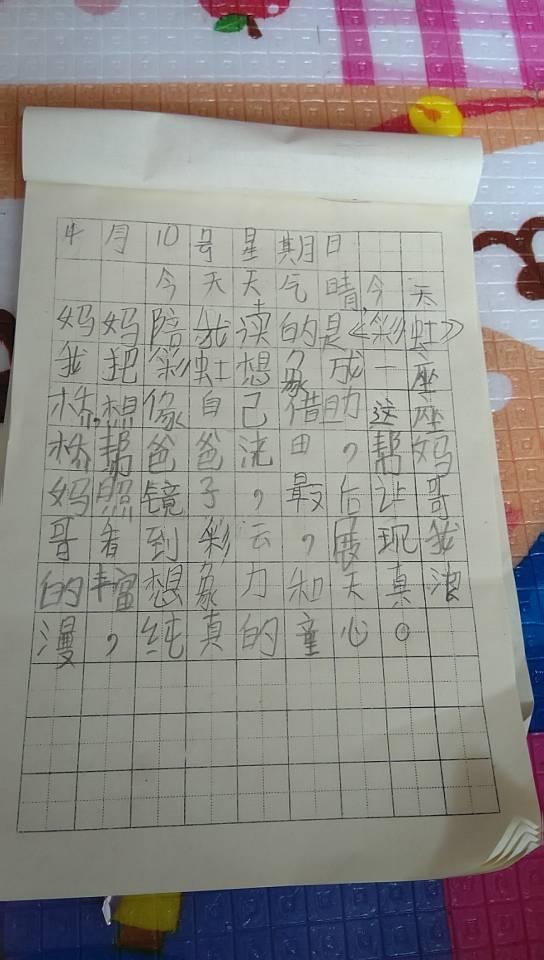 4月10号星期日
今天天气晴,今天
妈妈陪我读的是《彩虹》
我把彩虹想象成一座
桥,想像自己借助这座
桥帮爸爸浇田,帮妈
妈照镜子,最后让哥
哥看到彩云,展现我
的丰富想象力和天真浪
漫,纯真的童心。